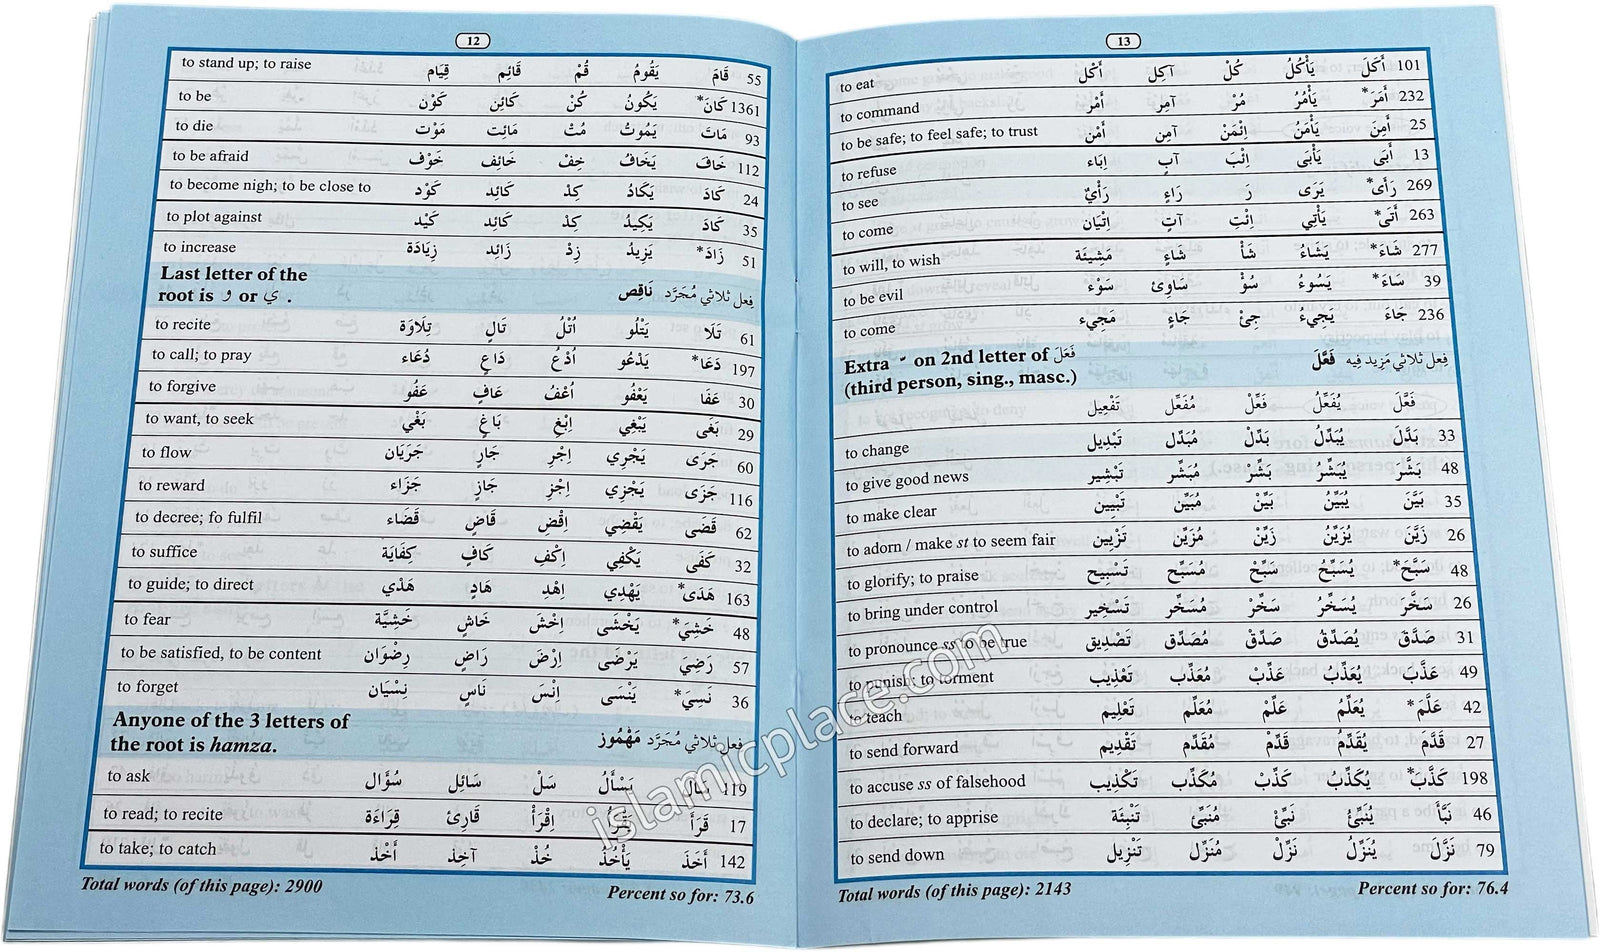 12
to stand up; to raise قِيَام قَائِم قُمْ يَقُومُ قَامَ 55
to be كَوْن كَائِن كُنْ يَكُونُ كَانَ* 1361
to die مَوْت مَائِت مُتْ يَمُوتُ مَاتَ 93
to be afraid خَوْف خَائِف خِفْ يَخَافُ خَافَ 112
to become nigh; to be close to كَوْد كَائِد كِدْ يَكَادُ كَادَ 24
to plot against كَيْد كَائِد كِدْ يَكِيدُ كَادَ 35
to increase زِيَادَة زَائِد زِدْ يَزِيدُ زَادَ* 51
Last letter of the
root is و or ي . فِعل ثلاثي مُجَرَّد نَاقِص
to recite تِلَاوَة تَالٍ اُتْلُ يَتْلُو تَلَا 61
to call; to pray دُعَاء دَاعٍ اُدْعُ يَدْعُو دَعَا* 197
to forgive عَفُو عَافٍ اُعْفُ يَعْفُو عَفَا 30
to want, to seek بَغْي بَاغٍ اِبْغِ يَبْغِي بَغَى 29
to flow جَرَيَان جَارٍ اِجْرِ يَجْرِي جَرَى 60
to reward جَزَاء جَازٍ اِجْزِ يَجْزِي جَزَى 116
to decree; fo fulfil قَضَاء قَاضٍ اِقْضِ يَقْضِي قَضَى 62
to suffice كِفَايَة كَافٍ اِكْفِ يَكْفِي كَفَى 32
to guide; to direct هَدْي هَادٍ اِهْدِ يَهْدِي هَدَى* 163
to fear خَشِيَّة خَاشٍ اِخْشَ يَخْشَى خَشِيَ* 48
to be satisfied, to be content رِضْوَان رَاضٍ اِرْضَ يَرْضَى رَضِيَ 57
to forget نِسْيَان نَاسٍ اِنْسَ يَنْسَى نَسِيَ* 36
Anyone of the 3 letters of
the root is hamza. فِعل ثلاثي مُجَرَّد مَهْمُوز
to ask سُؤَال سَائِل سَلْ يَسْأَلُ سَأَلَ 119
to read; to recite قِرَاءَة قَارِئ اِقْرَأْ يَقْرَأُ قَرَأَ 17
to take; to catch أَخْذ آخِذ خُذْ يَأْخُذُ أَخَذَ 142
Total words (of this page): 2900 Percent so for: 73.6
13
to eat أَكْل آكِل كُلْ يَأْكُلُ أَكَلَ 101
to command أَمْر آمِر مُرْ يَأْمُرُ أَمَرَ* 232
to be safe; to feel safe; to trust أَمْن آمِن اِئْمَنْ يَأْمَنُ أَمِنَ 25
to refuse إِبَاء آبٍ اِئْبَ يَأْبَى أَبَى 13
to see رَأْيٌ رَاءٍ رَ يَرَى رَأَى* 269
to come إِتْيَان آتٍ اِئْتِ يَأْتِي أَتَى* 263
to will, to wish مَشِيئَة شَاءٍ شَأْ يَشَاءُ شَاءَ* 277
to be evil سَوْء سَاوِئ سُؤْ يَسُوءُ سَاءَ* 39
to come مَجِيء جَاءٍ جِئْ يَجِيءُ جَاءَ 236
Extra ّ on 2nd letter of فَعَلَ
(third person, sing., masc.) فِعل ثلاثي مَزِيد فِيه فَعَّلَ
تَفْعِيل مُفَعِّل فَعِّلْ يُفَعِّلُ فَعَّلَ
to change تَبْدِيل مُبَدِّل بَدِّلْ يُبَدِّلُ بَدَّلَ 33
to give good news تَبْشِير مُبَشِّر بَشِّرْ يُبَشِّرُ بَشَّرَ 48
to make clear تَبْيِين مُبَيِّن بَيِّنْ يُبَيِّنُ بَيَّنَ 35
to adorn / make st to seem fair تَزْيِين مُزَيِّن زَيِّنْ يُزَيِّنُ زَيَّنَ 26
to glorify; to praise تَسْبِيح مُسَبِّح سَبِّحْ يُسَبِّحُ سَبَّحَ* 48
to bring under control تَسْخِير مُسَخِّر سَخِّرْ يُسَخِّرُ سَخَّرَ 26
to pronounce ss to be true تَصْدِيق مُصَدِّق صَدِّقْ يُصَدِّقُ صَدَّقَ 31
to punish; to torment تَعْذِيب مُعَذِّب عَذِّبْ يُعَذِّبُ عَذَّبَ 49
to teach تَعْلِيم مُعَلِّم عَلِّمْ يُعَلِّمُ عَلَّمَ* 42
to send forward تَقْدِيم مُقَدِّم قَدِّمْ يُقَدِّمُ قَدَّمَ 27
to accuse ss of falsehood تَكْذِيب مُكَذِّب كَذِّبْ يُكَذِّبُ كَذَّبَ* 198
to declare; to apprise تَنْبِئَة مُنَبِّئ نَبِّئْ يُنَبِّئُ نَبَّأَ 46
to send down تَنْزِيل مُنَزِّل نَزِّلْ يُنَزِّلُ نَزَّلَ 79
Total words (of this page): 2143 Percent so for: 76.4
islamicplace.com